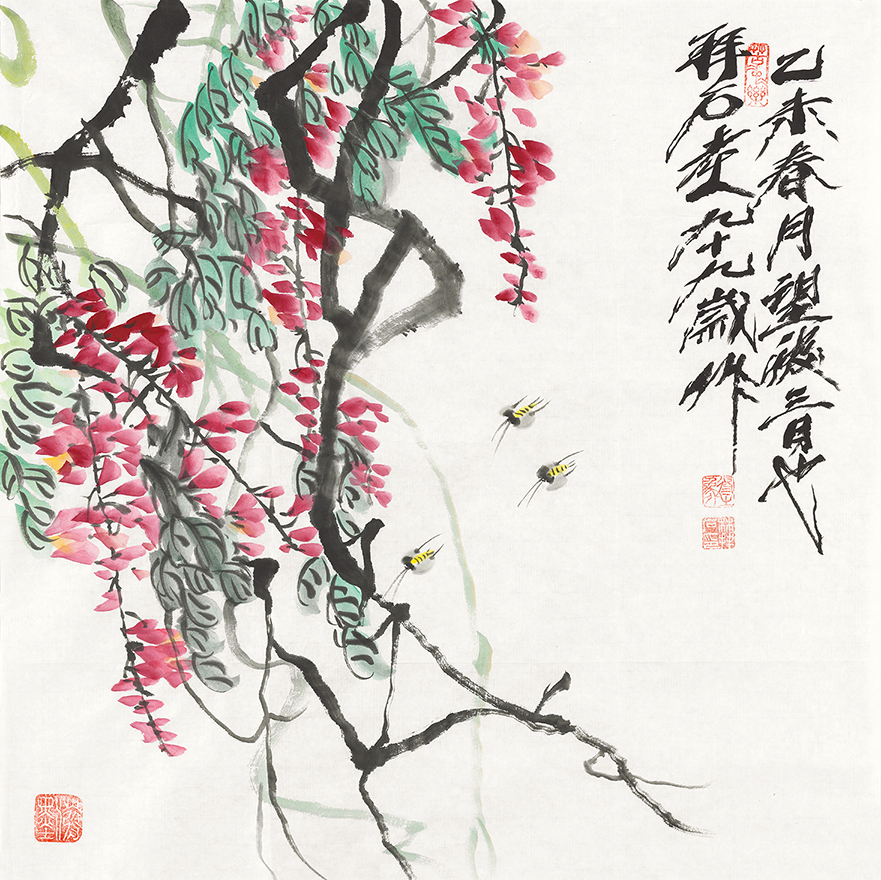 乙未春月望後三日也
拜石老人九十九歲作